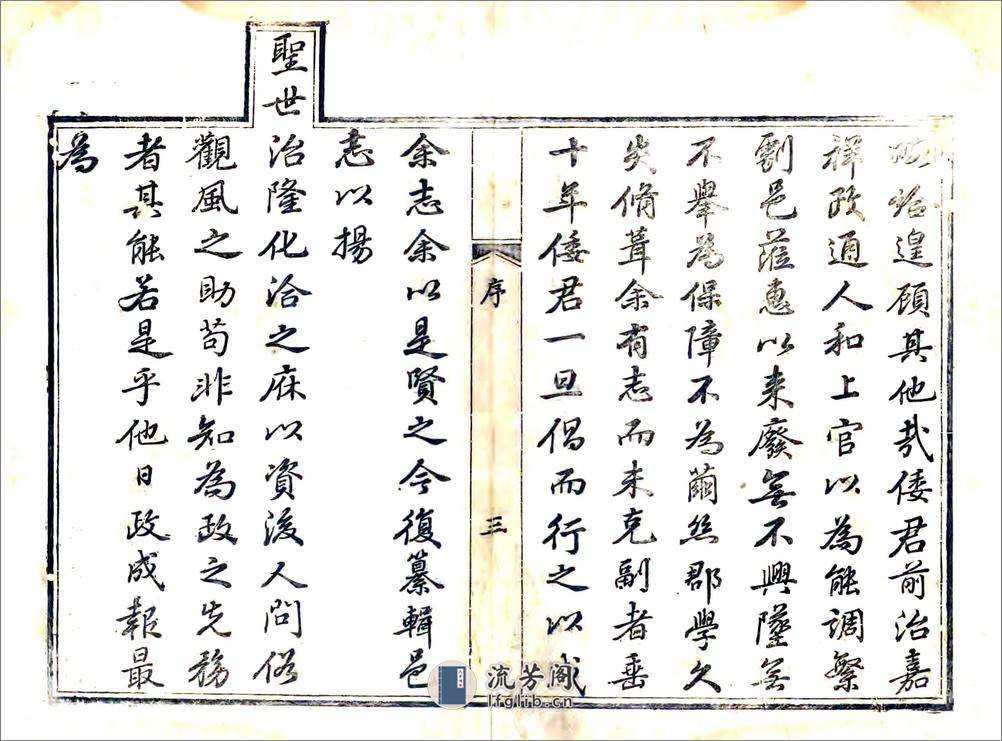 給遑顧其他哉倭君前治嘉
祥政通人和上官以為能調繁
劇邑蒞惠以来廢無不興墜無
不舉為保障不為繭絲郡學久
失脩葺余有志而未克副者垂
十年倭君一旦倡而行之以成
序
三
余志余以是賢之今復纂輯邑
志以揚
聖世治隆化洽之庥以資後人問俗
觀風之助苟非知為政之先務
者其能若是乎他日政成報最
為
流芳阁
lfglib.cn